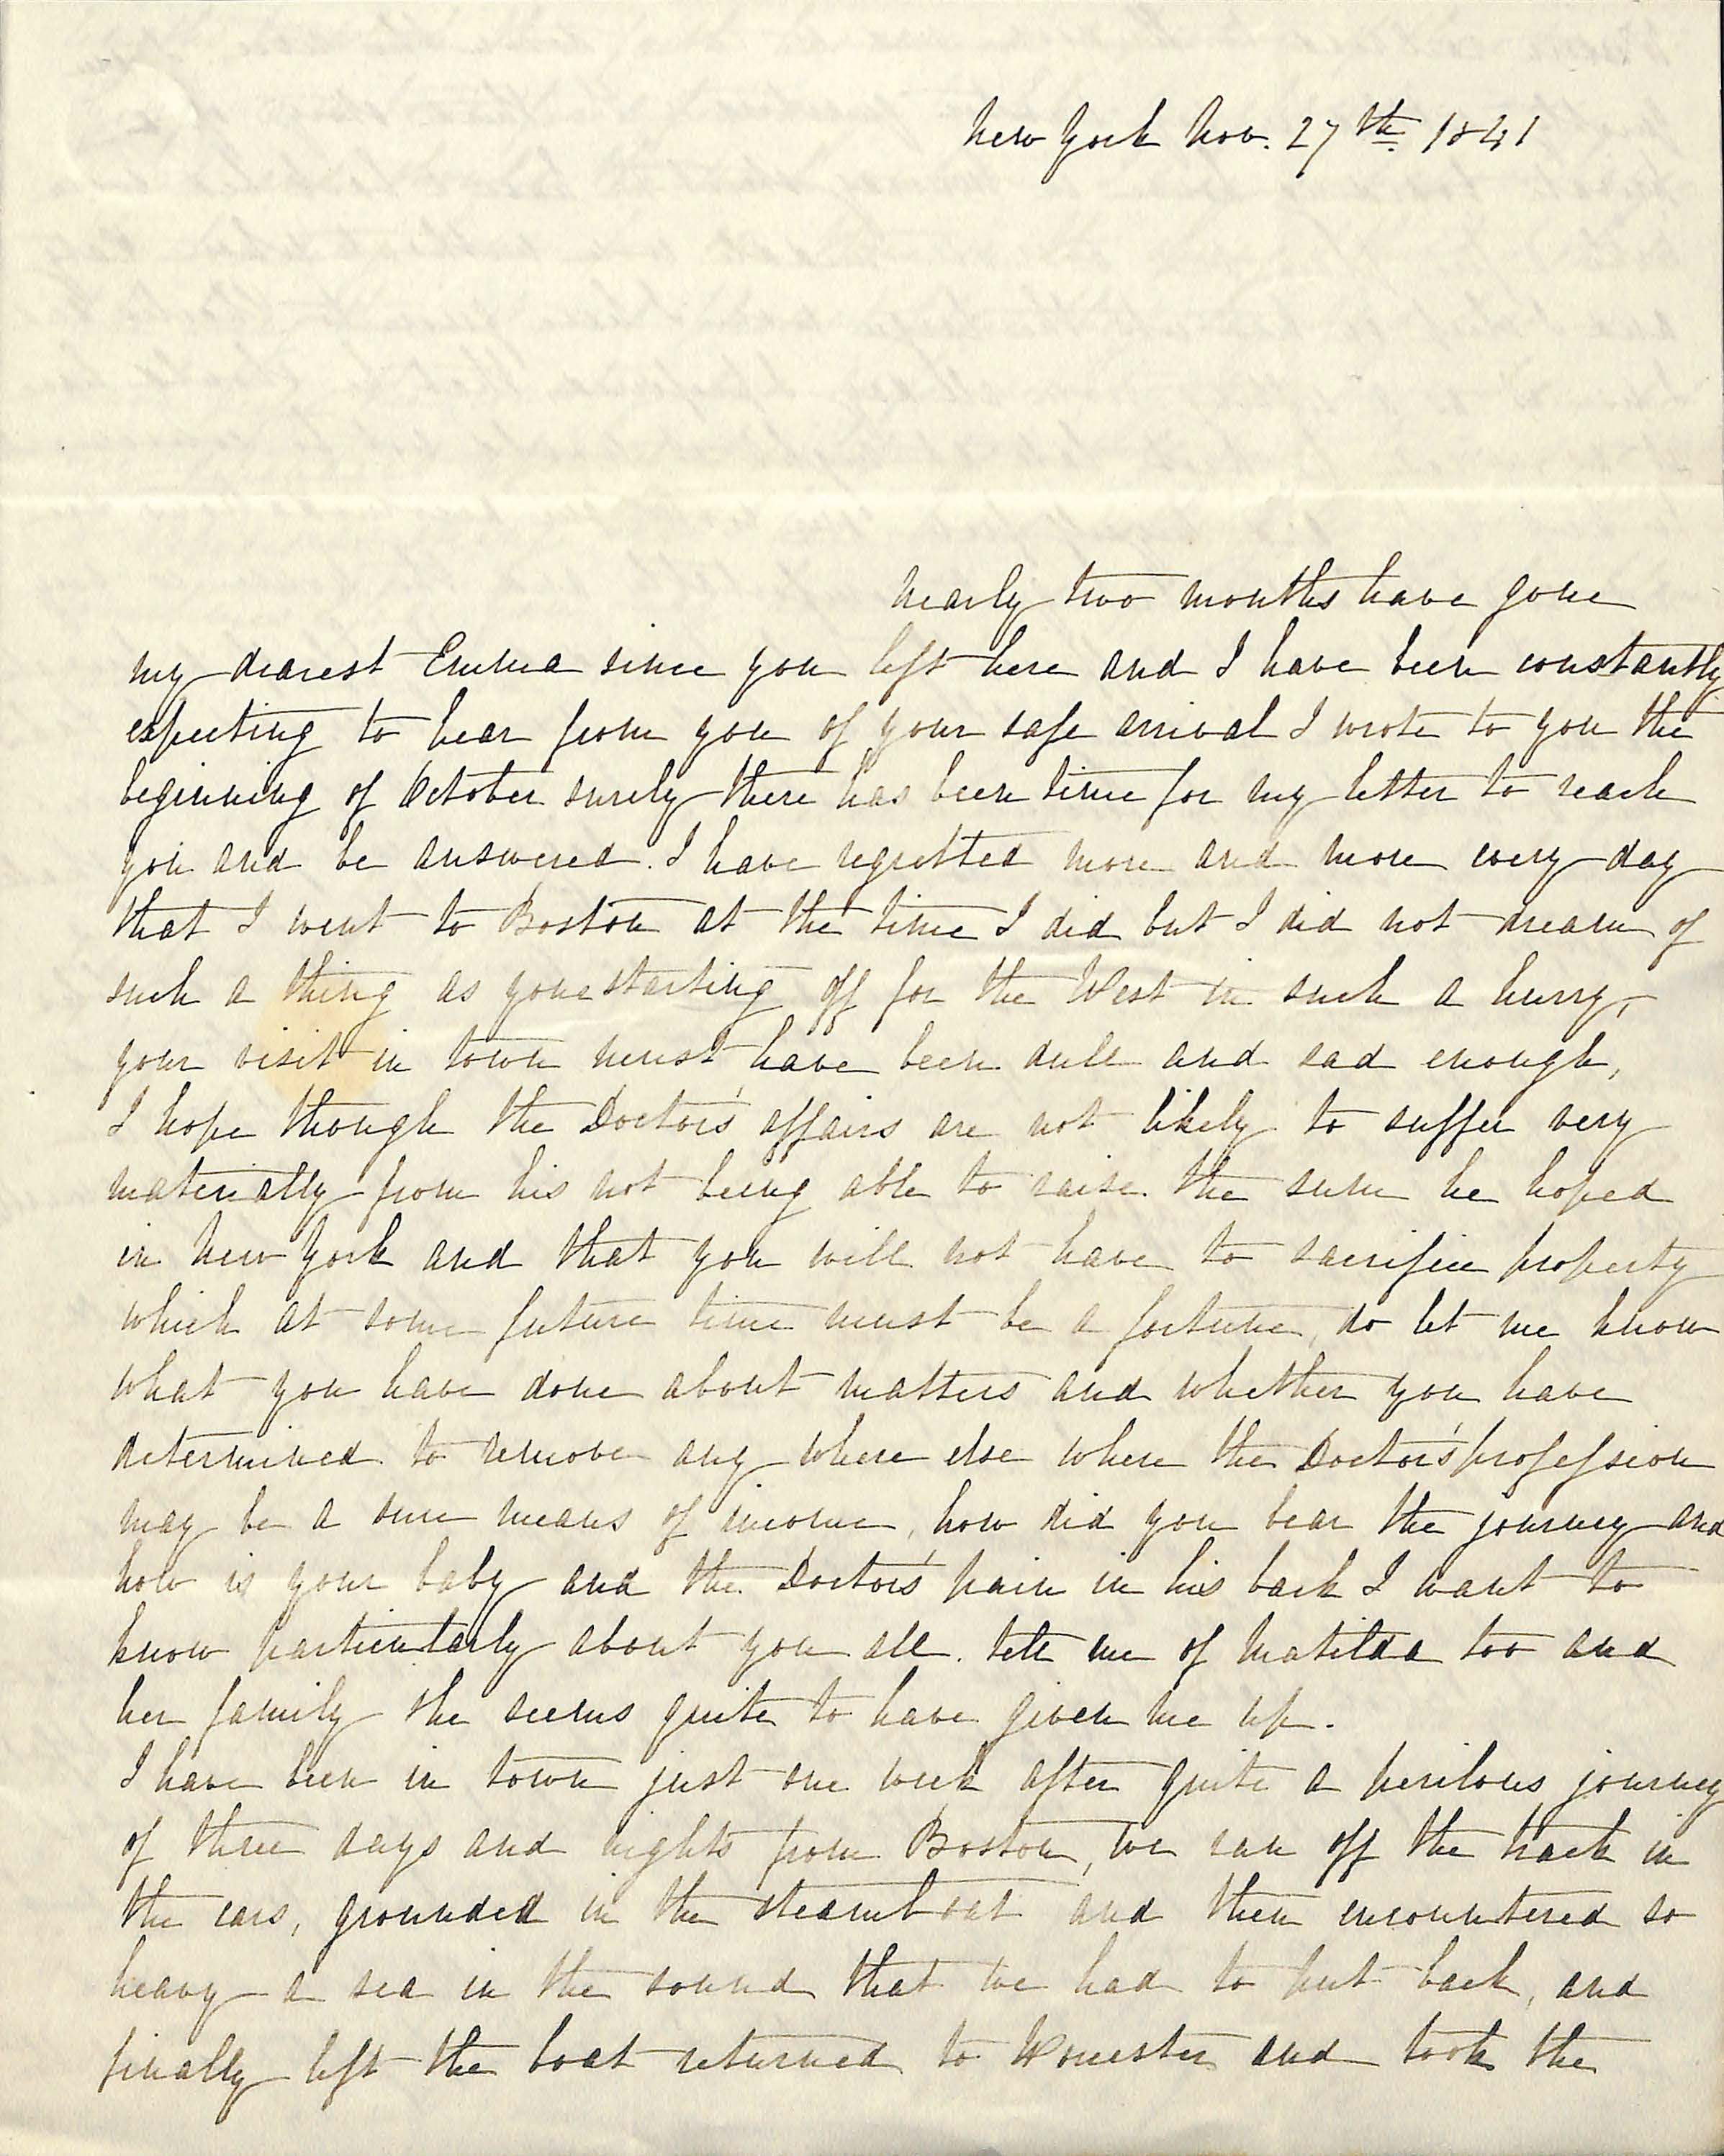 New York Nov. 27th 1841
Nearly two months have gone
my dearest Emma since you left here and I have been constantly
expecting to hear from you of your safe arrival I wrote to you the
beginning of October surely there has been time for my letter to reach
you and be answered. I have regretted more and more every day
that I went to Boston at the time I did but I did not dream of
such a thing as your starting off for the West in such a hurry,
your visit in town must have been dull and sad enough,
I hope though the Doctor's affairs are not likely to suffer very
materially from his not being able to raise the sum he hoped
in New York and that you will not have to sacrifice property
which at some future time must be a fortune, do let me know
what you have done about matters and whether you have
determined to remove any where else where the Doctor's profession
may be a sure means of income, how did you bear the journey and
how is your baby and the Doctor's pain in his back I want to
know particularly about you all. tell me of Matilda too and
her family she seems quite to have given me up.
I have been in town just one week after quite a perilous journey
of three days and nights from Boston, we ran off the track in
the cars, grounded in the steamboat and then encountered so
heavy a sea in the sound that we had to put back, and
finally left the boat returned to Worcester and took the